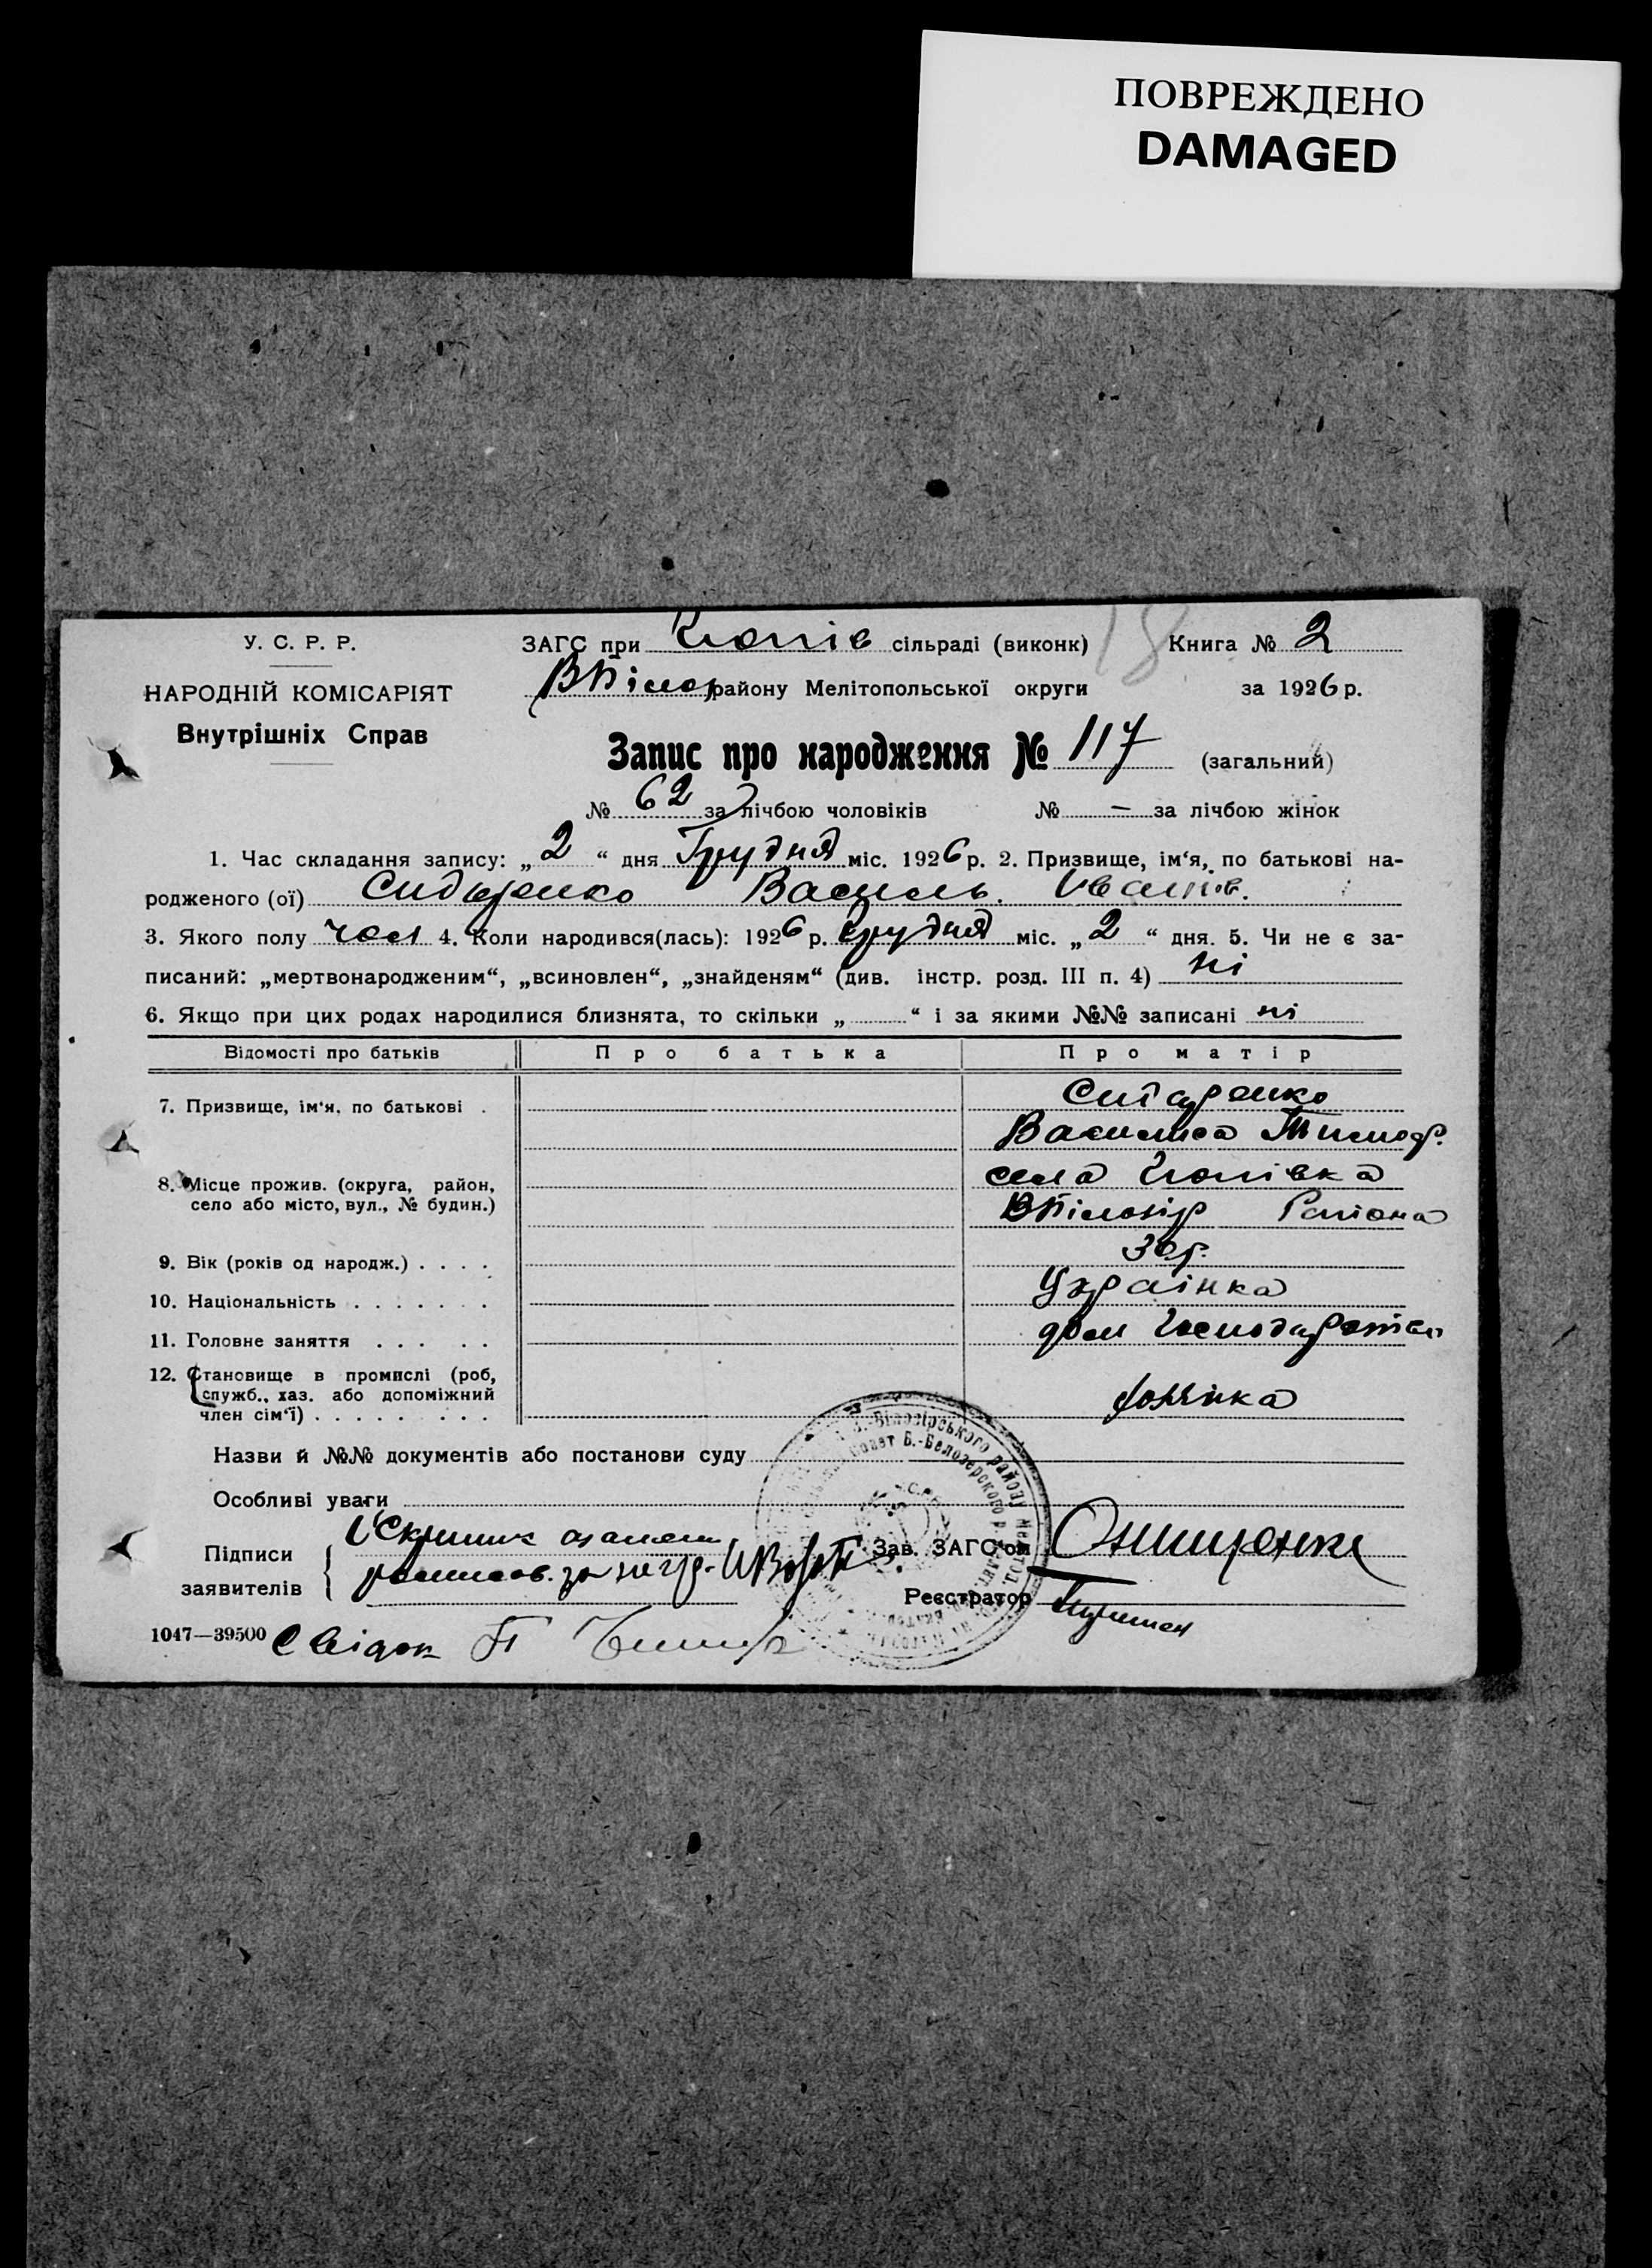 ПОВРЕЖДЕНО
DAMAGED
У. С. Р. Р.
НАРОДНІЙ КОМІСАРІЯТ
Внутрішніх Справ
ЗАГС при сільраді (виконк) 18 Книга № 2
району Мелітопольської округи за 1926 р.
Запис про народження № 117 (загальний)
№ 62 за лічбою чоловіків № — за лічбою жінок
1. Час складання запису: „2“ дня Грудня міс. 1926 р. 2. Призвище, ім‘я, по батькові на-
родженого (ої) Сидоренко Василь. Иванів.
3. Якого полу чол 4. Коли народився(лась): 1926 р. Грудня міс. „2“ дня. 5. Чи не є за-
писаний: „мертвонародженим“, „всиновлен“, „знайденям“ (див. інстр. розд. III п. 4) ні
6. Якщо при цих родах народилися близнята, то скільки „ “ і за якими №№ записані ні
Відомості про батьків Про батька Про матір
7. Призвище, ім‘я, по батькові . Сидоренко
Василиса
8. Місце прожив. (округа, район, села
село або місто, вул., № будин.) Района
9. Вік (років од народж.) . . . . 30 р.
10. Національність . . . . . . . Українка
11. Головне заняття . . . . . дом Господарство
12. Становище в промислі (роб,
служб., хаз. або допоміжний
член сім‘ї) . . . . . . . .
Назви й №№ документів або постанови суду
Особливі уваги
Підписи
заявителів
Зав. ЗАГС‘ом Онищенко
Реєстратор
1047—39500 Свідок П